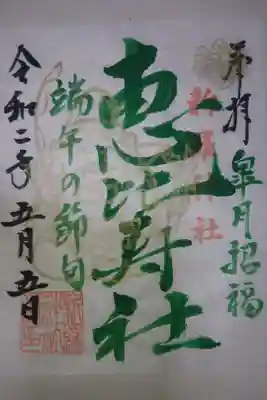 奉拝
皐月招福
恵比寿社
端午の節句
令和二年五月五日